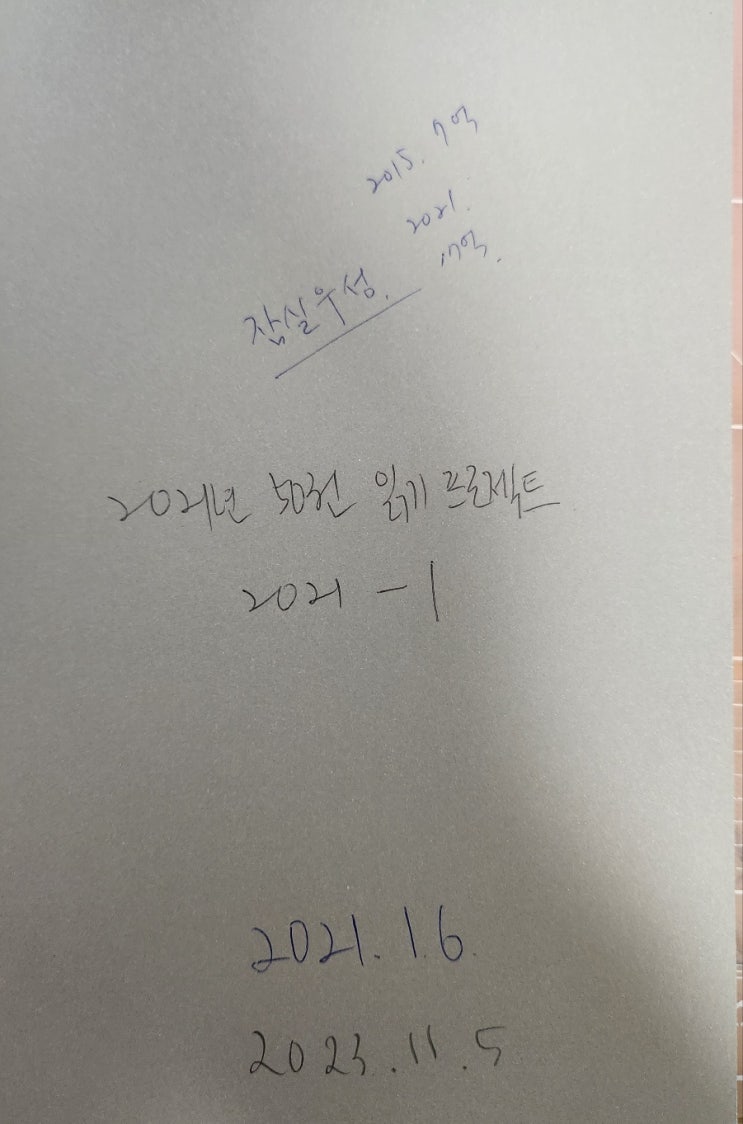 2015. 7억
2021.
17억.
잠실우성.
2021년 50권 읽기 프로젝트
2021 - 1
2021. 1. 6.
2023. 11. 5